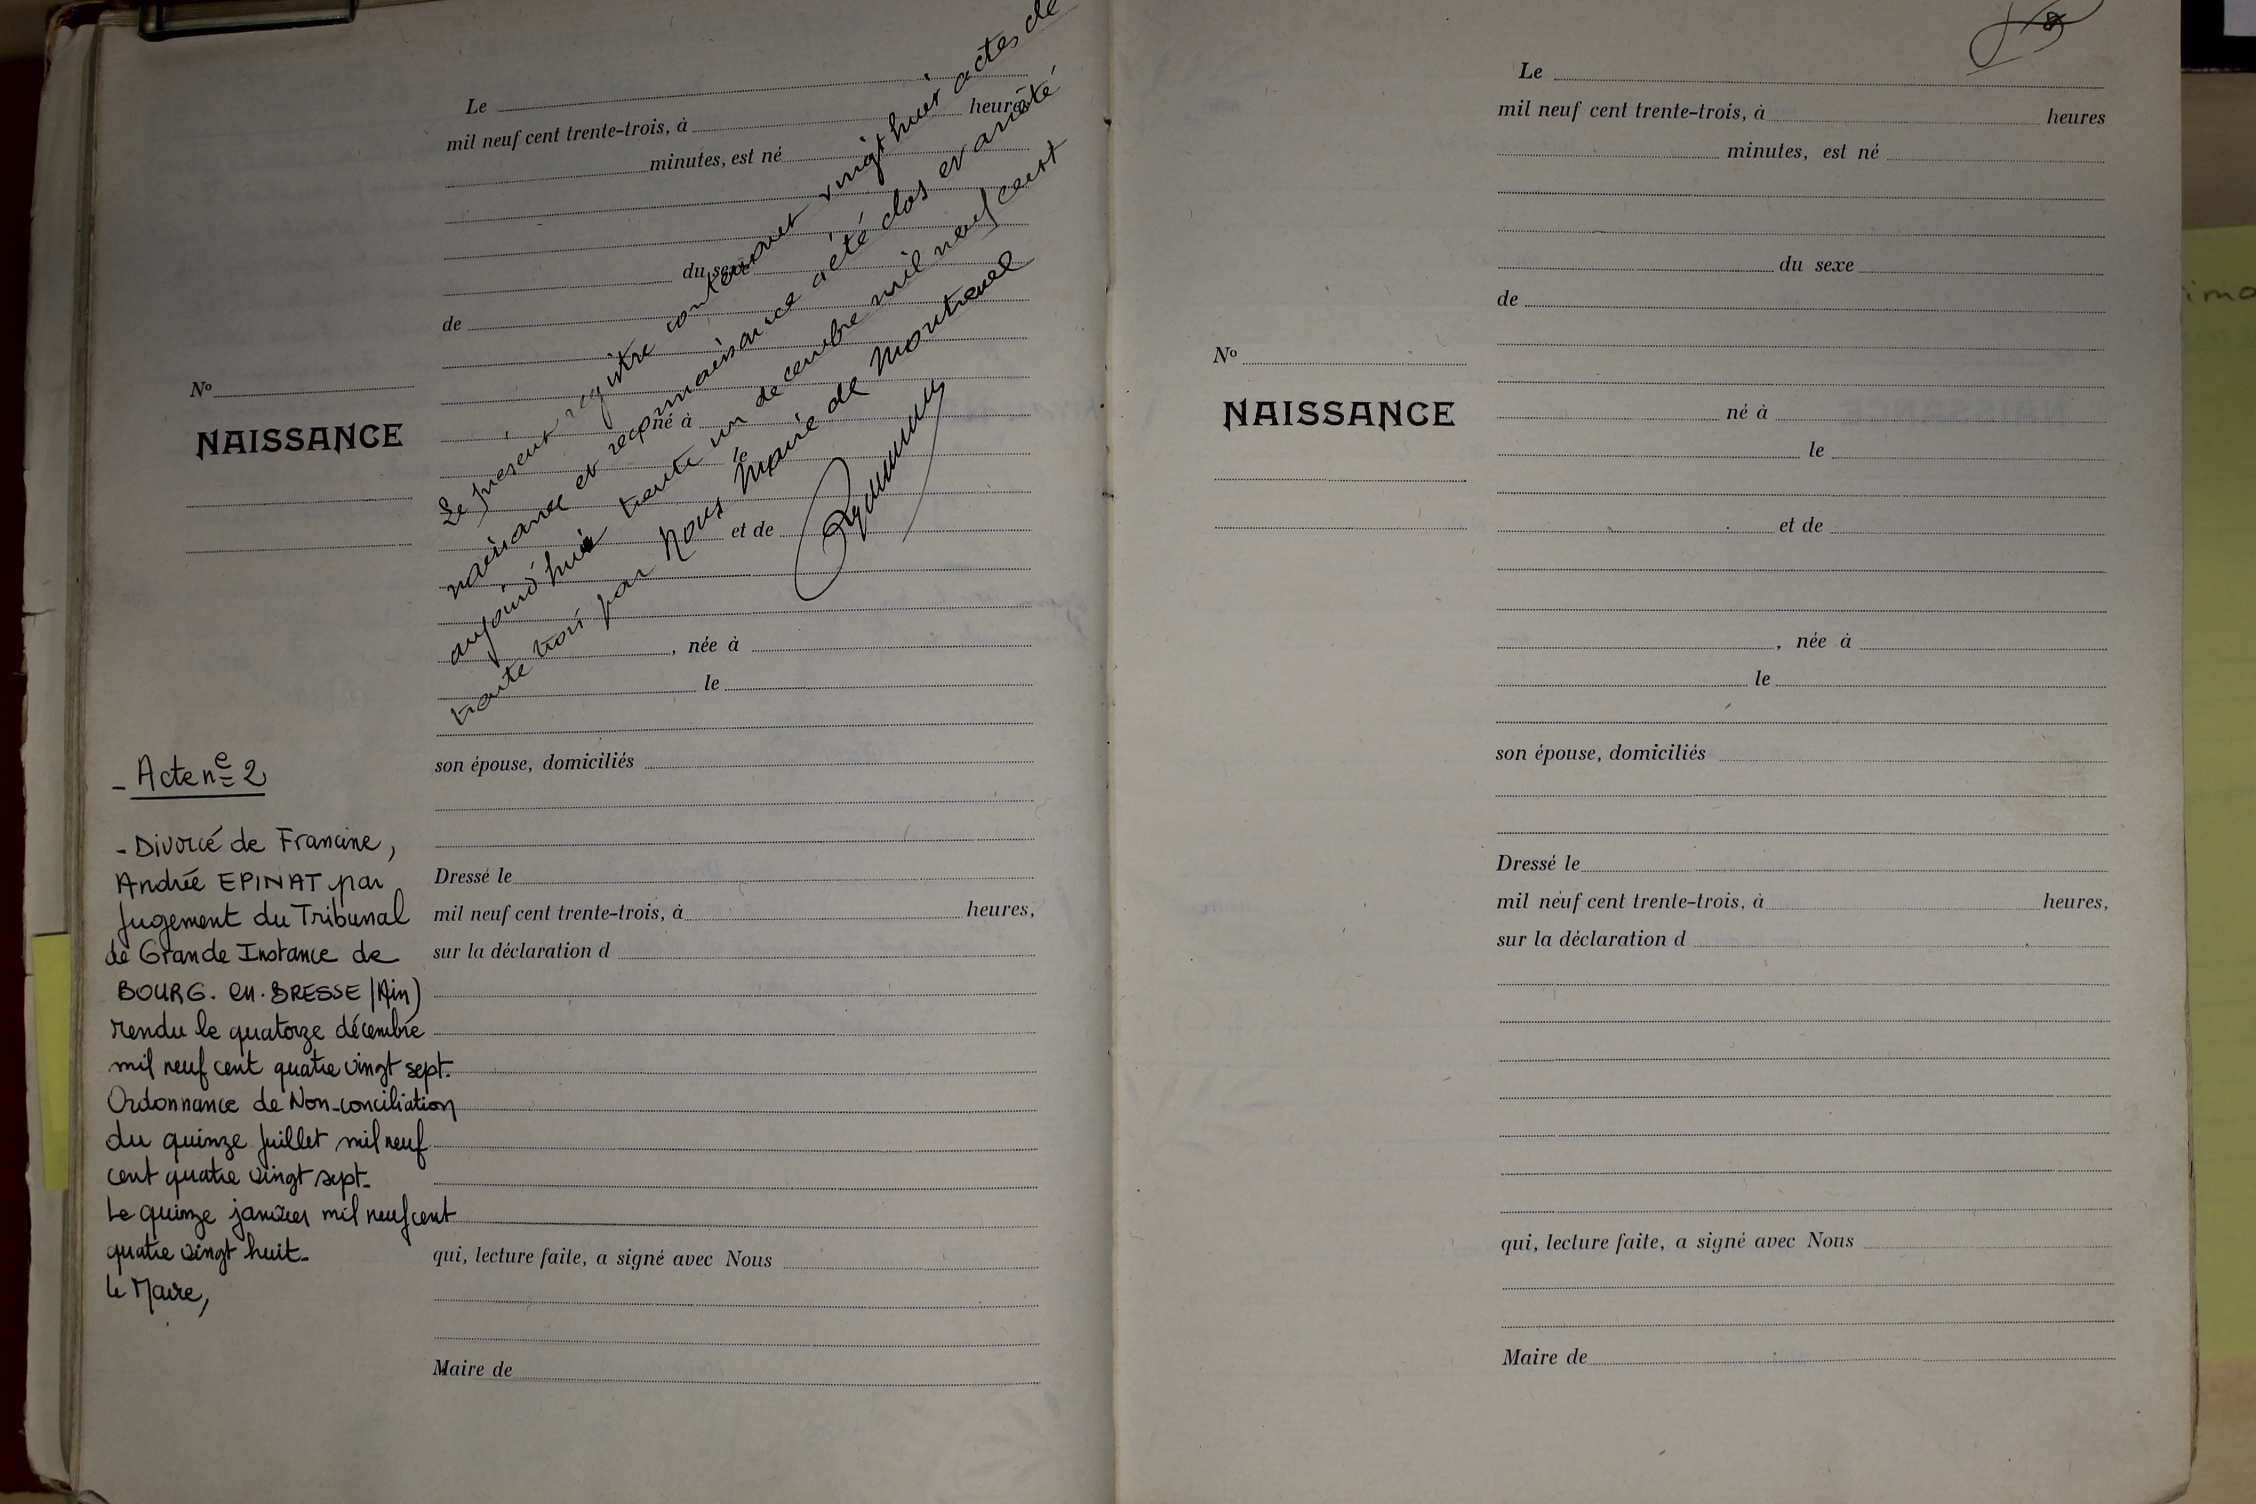 Le
mil neuf cent trente-trois, à heures
minutes, est né
du sexe
de
né à
le
et de
, née à
le
son épouse, domiciliés
Dressé le
mil neuf cent trente-trois, à heures,
sur la déclaration d
qui, lecture faite, a signé avec Nous
Maire de
Le présent registre contenant vingt huit actes de
naissance et reconnaissance a été clos et arrêté
aujourd'hui trente un decembre mil neuf cent
trente trois par Nous Maire de Montrevel
No
NAISSANCE
- Acte n° 2
- Divorcé de Francine,
Andrée EPINAT par
Jugement du Tribunal
de Grande Instance de
BOURG. en. BRESSE (Ain)
rendu le quatorze décembre
mil neuf cent quatre vingt sept.
Ordonnance de Non-conciliation
du quinze Juillet mil neuf
cent quatre vingt sept.
Le quinze janvier mil neuf cent
quatre vingt huit.
Le Maire,
No
NAISSANCE
Le
mil neuf cent trente-trois, à heures
minutes, est né
du sexe
de
né à
le
et de
, née à
le
son épouse, domiciliés
Dressé le
mil neuf cent trente-trois, à heures,
sur la déclaration d
qui, lecture faite, a signé avec Nous
Maire de